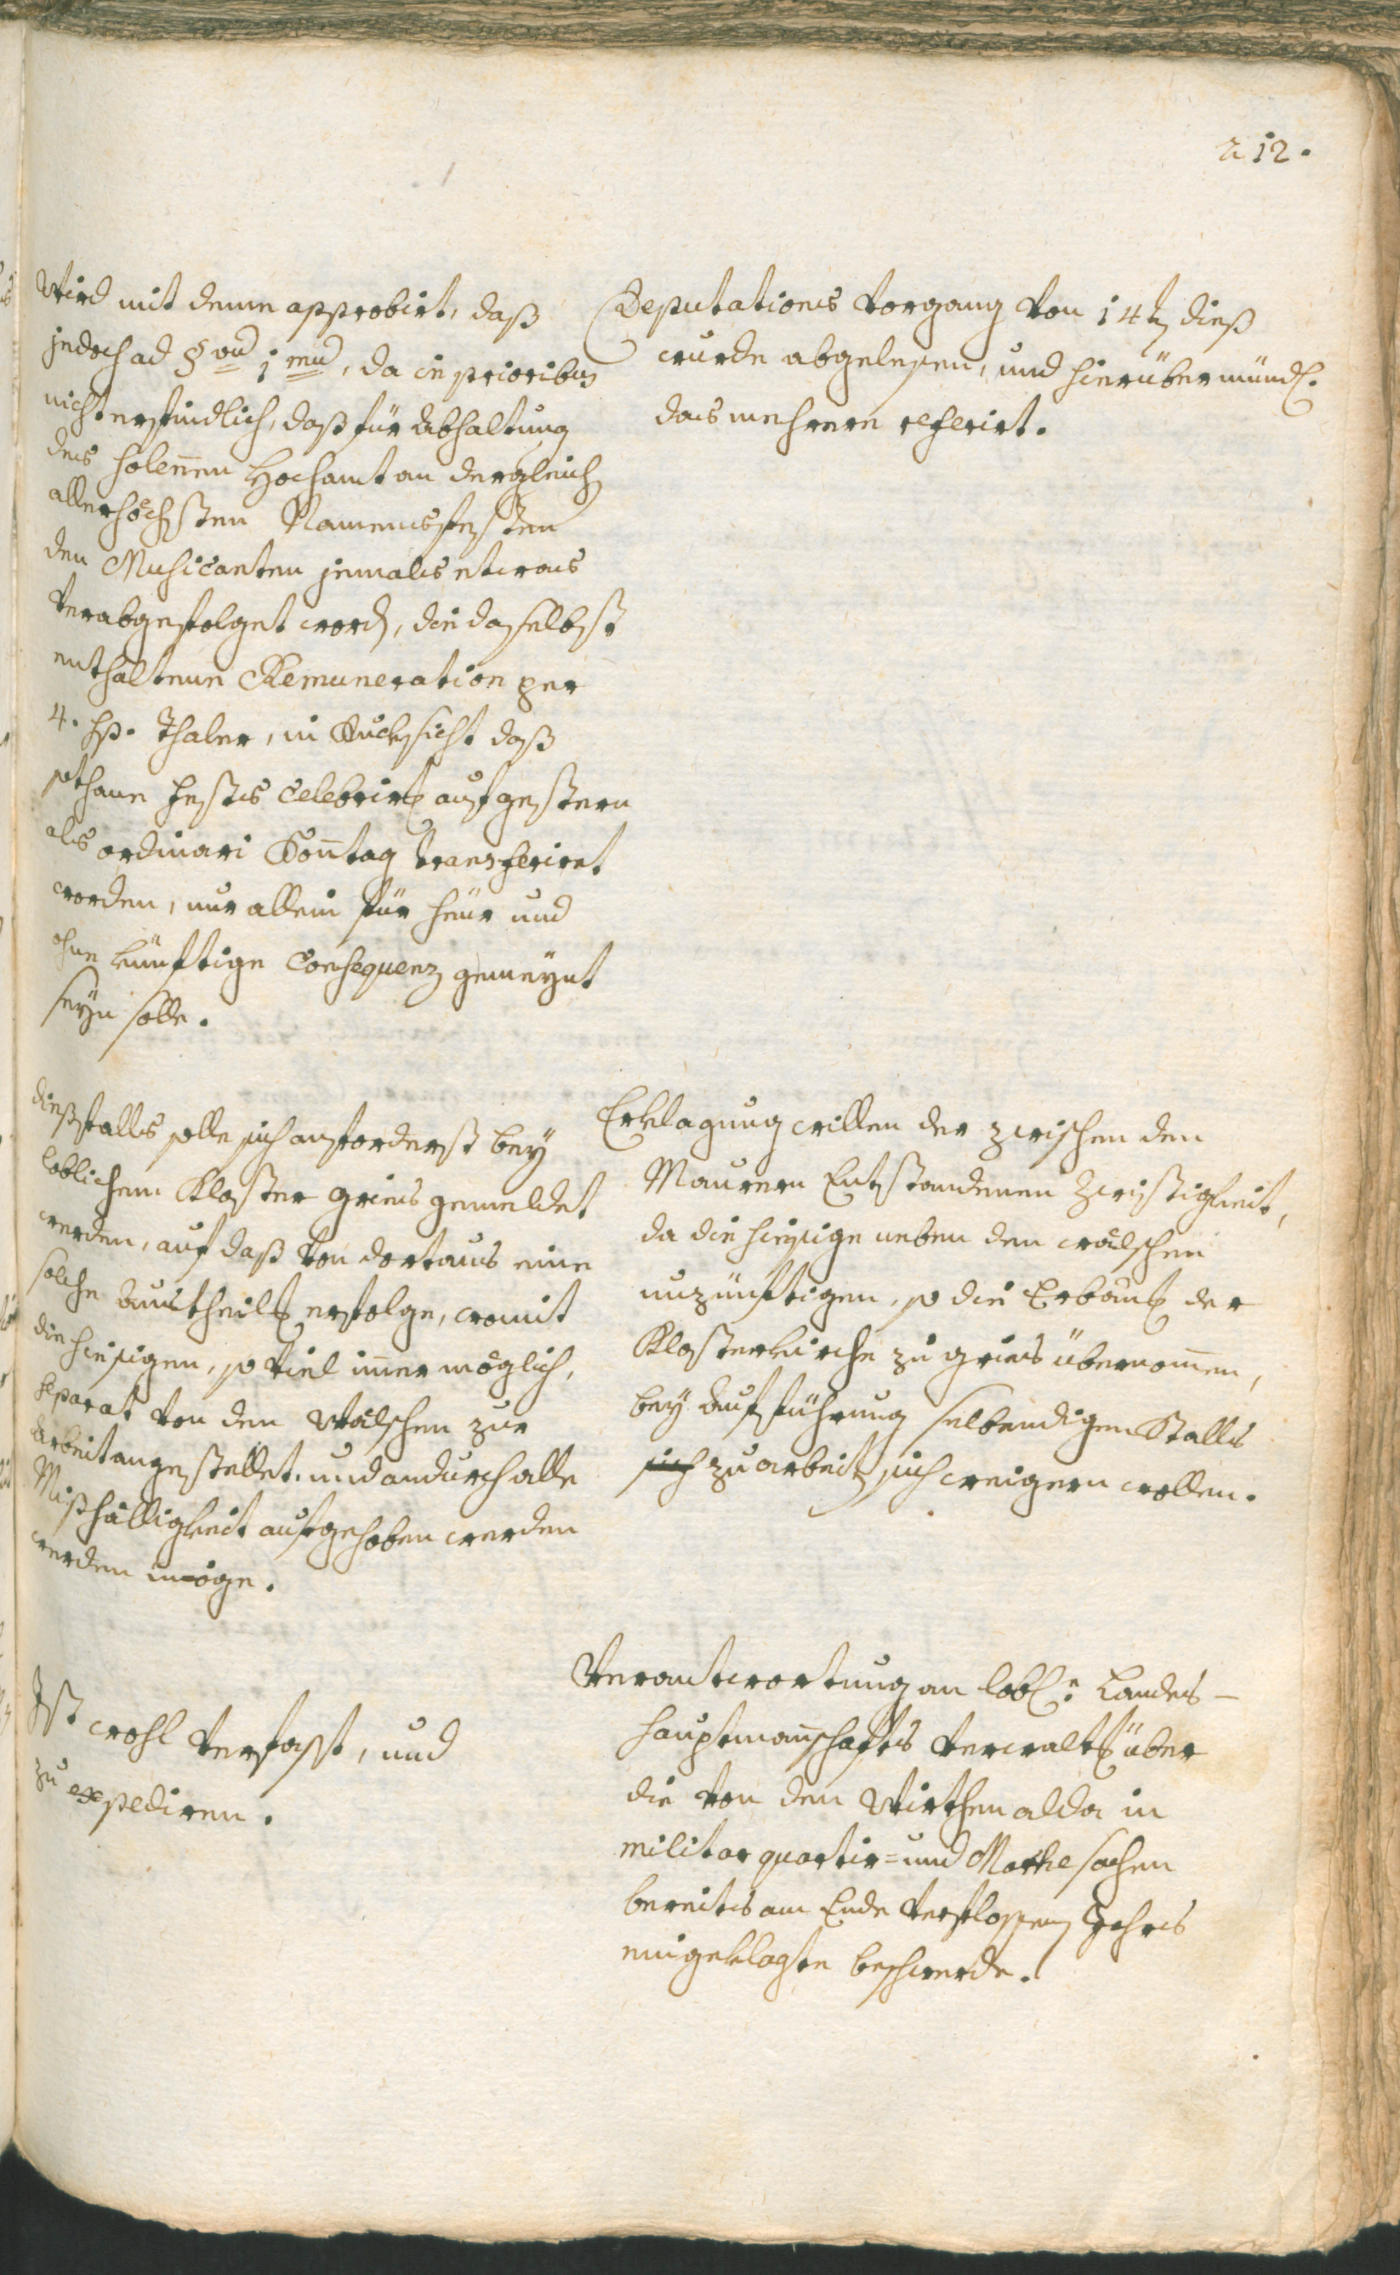 212.
Wird mit deme approbirt, daß
jedoch ad §um 1mum, da in prioribus
nicht erfindlich, daß für Abhaltung
des solennen Hochamt an dergleich
allerhöchsten Namensfesten
den Musicanten jemals etwas
verabgefolget word, die daselbst
enthaltene Remuneration per
4. sp. Thaler, in Rucksicht daß
sothane Festes celebrir auf gestern
als ordinari Sontag transferiret
worden, nur allein für heur und
ohne künftige Consequenz gemeynt
seyn solle.
Deputations Vorgang von 14t dieß
wurde abgelesen, und hierüber mündl.
das mehrere referirt.
dießfalls solle sich anforderst bey
loblichem Kloster Gries gemeldet
werden, auf daß von dortaus eine
solche Austheil erfolge, womit
die hiesigen, so viel imer möglich,
separat von den Wälschen zur
Arbeit angestellet, und andurch alle
Mißhälligkeit aufgehoben werden
werden möge.
Erklagung willen der zwischen den
Maurern Entstandenen Zwistigkeit,
da die hiesige neben den wälschen
unzünftigen, so die Erbau der
Klosterkirche zu Gries übernomen,
bey Aufführung selbendigen Stalls
sich zu arbeit sich weigern wollen.
Ist wohl verfasst, und
zu expediren.
Verantwortung an lobl. Landes-
hauptmanschafts Verwalt über
die von den Wirthen alda in
militar quartir- und Marche sachen
bereits am Ende verflossen Jahrs
eingeklagte beschwerde.